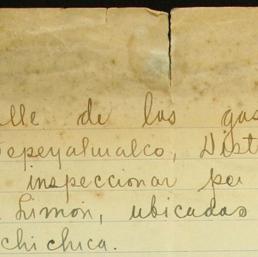 lle de los gas
Tepeyahualco, Dist
inspeccionar po
Limón, ubicadas
chichica.